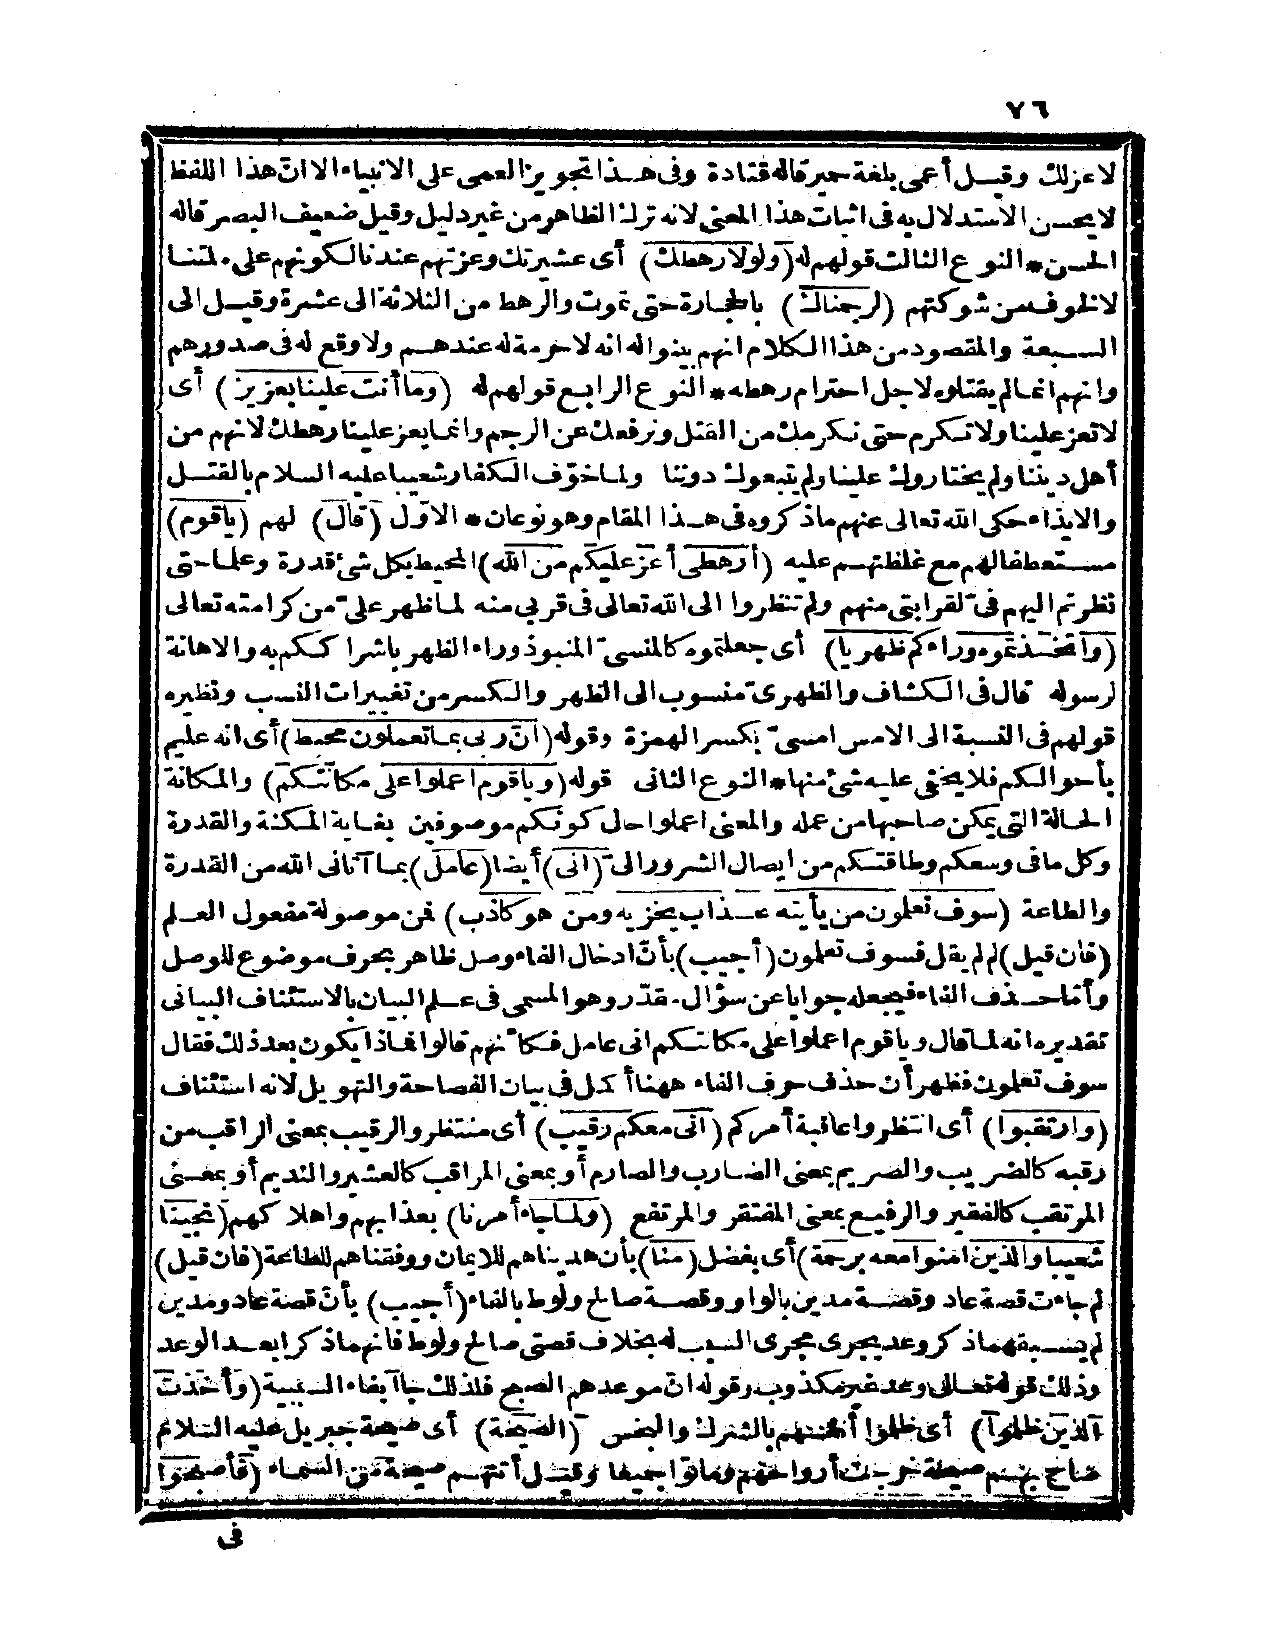 ٧٦
لا عز لك وقيل أعمى بلغة حمير قاله قتادة وفى هذا تجويز العمى على الانبياء الا انّ هذا اللفظ
لا يحسن الاستدلال به فى اثبات هذا المعنى لانه ترك الظاهر من غير دليل وقيل ضعيف البصر قاله
الحسن * النوع الثالث قولهم له (ولولا رهطك) أى عشيرتك وعزتهم عندنا لكونهم على ملتنا
لا لخوف من شوكتهم (لرجمناك) بالحجارة حتى تموت والرهط من الثلاثة الى عشرة وقيل الى
السبعة والمقصود من هذا الكلام انهم بينوا له انه لا حرمة له عندهم ولا وقع له فى صدورهم
وانهم انما لم يقتلوه لاجل احترام رهطه * النوع الرابع قولهم له (وما أنت علينا بعزيز) أى
لا تعز علينا ولا تكرم حتى نكرمك من القتل ونرفعك عن الرجم وانما يعز علينا رهطك لانهم من
أهل ديننا ولم يختاروك علينا ولم يتبعوك دوننا ولما خوّف الكفار شعيبا عليه السلام بالقتل
والايذاء حكى الله تعالى عنهم ما ذكروه فى هذا المقام وهو نوعان * الاوّل (قال) لهم (ياقوم)
مستعطفا لهم مع غلظتهم عليه (أرهطى أعز عليكم من الله) المحيط بكل شئ قدرة وعلما حتى
نظرتم اليهم فىّ لقرابتى منهم ولم تنظروا الى الله تعالى فى قربى منه لما ظهر علىّ من كرامته تعالى
(واتخذتموه وراءكم ظهريا) أى جعلتموه كالمنسىّ المنبوذ وراء الظهر باشراككم به والاهانة
لرسوله قال فى الكشاف والظهرىّ منسوب الى الظهر والكسر من تغييرات النسب ونظيره
قولهم فى النسبة الى الامس امسىّ بكسر الهمزة وقوله (انّ ربى بما تعملون محيط) أى انه عليم
بأحوالكم فلا يخفى عليه شئ منها * النوع الثانى قوله (وياقوم اعملوا على مكانتكم) والمكانة
الحالة التى يمكن صاحبها من عمله والمعنى اعملوا حال كونكم موصوفين بغاية المكنة والقدرة
وكل ما فى وسعكم وطاقتكم من ايصال الشرور الىّ (انى) أيضا (عامل) بما آتانى الله من القدرة
والطاعة (سوف تعلمون من يأتيه عذاب يخزيه ومن هو كاذب) فمن موصولة مفعول العلم
(فان قيل) لم لم يقل فسوف تعلمون (أجيب) بأنّ ادخال الفاء وصل ظاهر بحرف موضوع للوصل
وأمّا حذف الفاء فيجعله جوابا عن سؤال مقدّر وهو المسمى فى علم البيان بالاستئناف البيانى
تقديره انه لما قال وياقوم اعملوا على مكانتكم انى عامل فكأنهم قالوا فماذا يكون بعد ذلك فقال
سوف تعلمون فظهر أن حذف حرف الفاء ههنا أكمل فى بيان الفصاحة والتهويل لانه استئناف
(وارتقبوا) أى انتظروا عاقبة أمركم (انى معكم رقيب) أى منتظر والرقيب بمعنى الراقب من
رقبه كالضريب والصريم بمعنى الضارب والصارم أو بمعنى المراقب كالعشير والنديم أو بمعنى
المرتقب كالفقير والرفيع بمعنى المفتقر والمرتفع (ولما جاء أمرنا) بعذابهم واهلاكهم (نجينا
شعيبا والذين امنوا معه برحمة) أى بفضل (منا) بأن هديناهم للايمان ووفقناهم للطاعة (فان قيل)
لم جاءت قصة عاد وقصة مدين بالواو وقصة صالح ولوط بالفاء (أجيب) بأنّ قصة عاد ومدين
لم يسبقهما ذكر وعد يجرى مجرى السبب له بخلاف قصتى صالح ولوط فانهما ذكرا بعد الوعد
وذلك قوله تعالى وعد غير مكذوب وقوله انّ موعدهم الصبح فلذلك جاآ بفاء السببية (وأخذت
الذين ظلموا) أى ظلموا أنفسهم بالشرك والبخس (الصيحة) أى صيحة جبريل عليه السلام
صاح بهم صيحة خرجت أرواحهم وماتوا جميعا وقيل أتتهم صيحة من السماء (فأصبحوا
فى